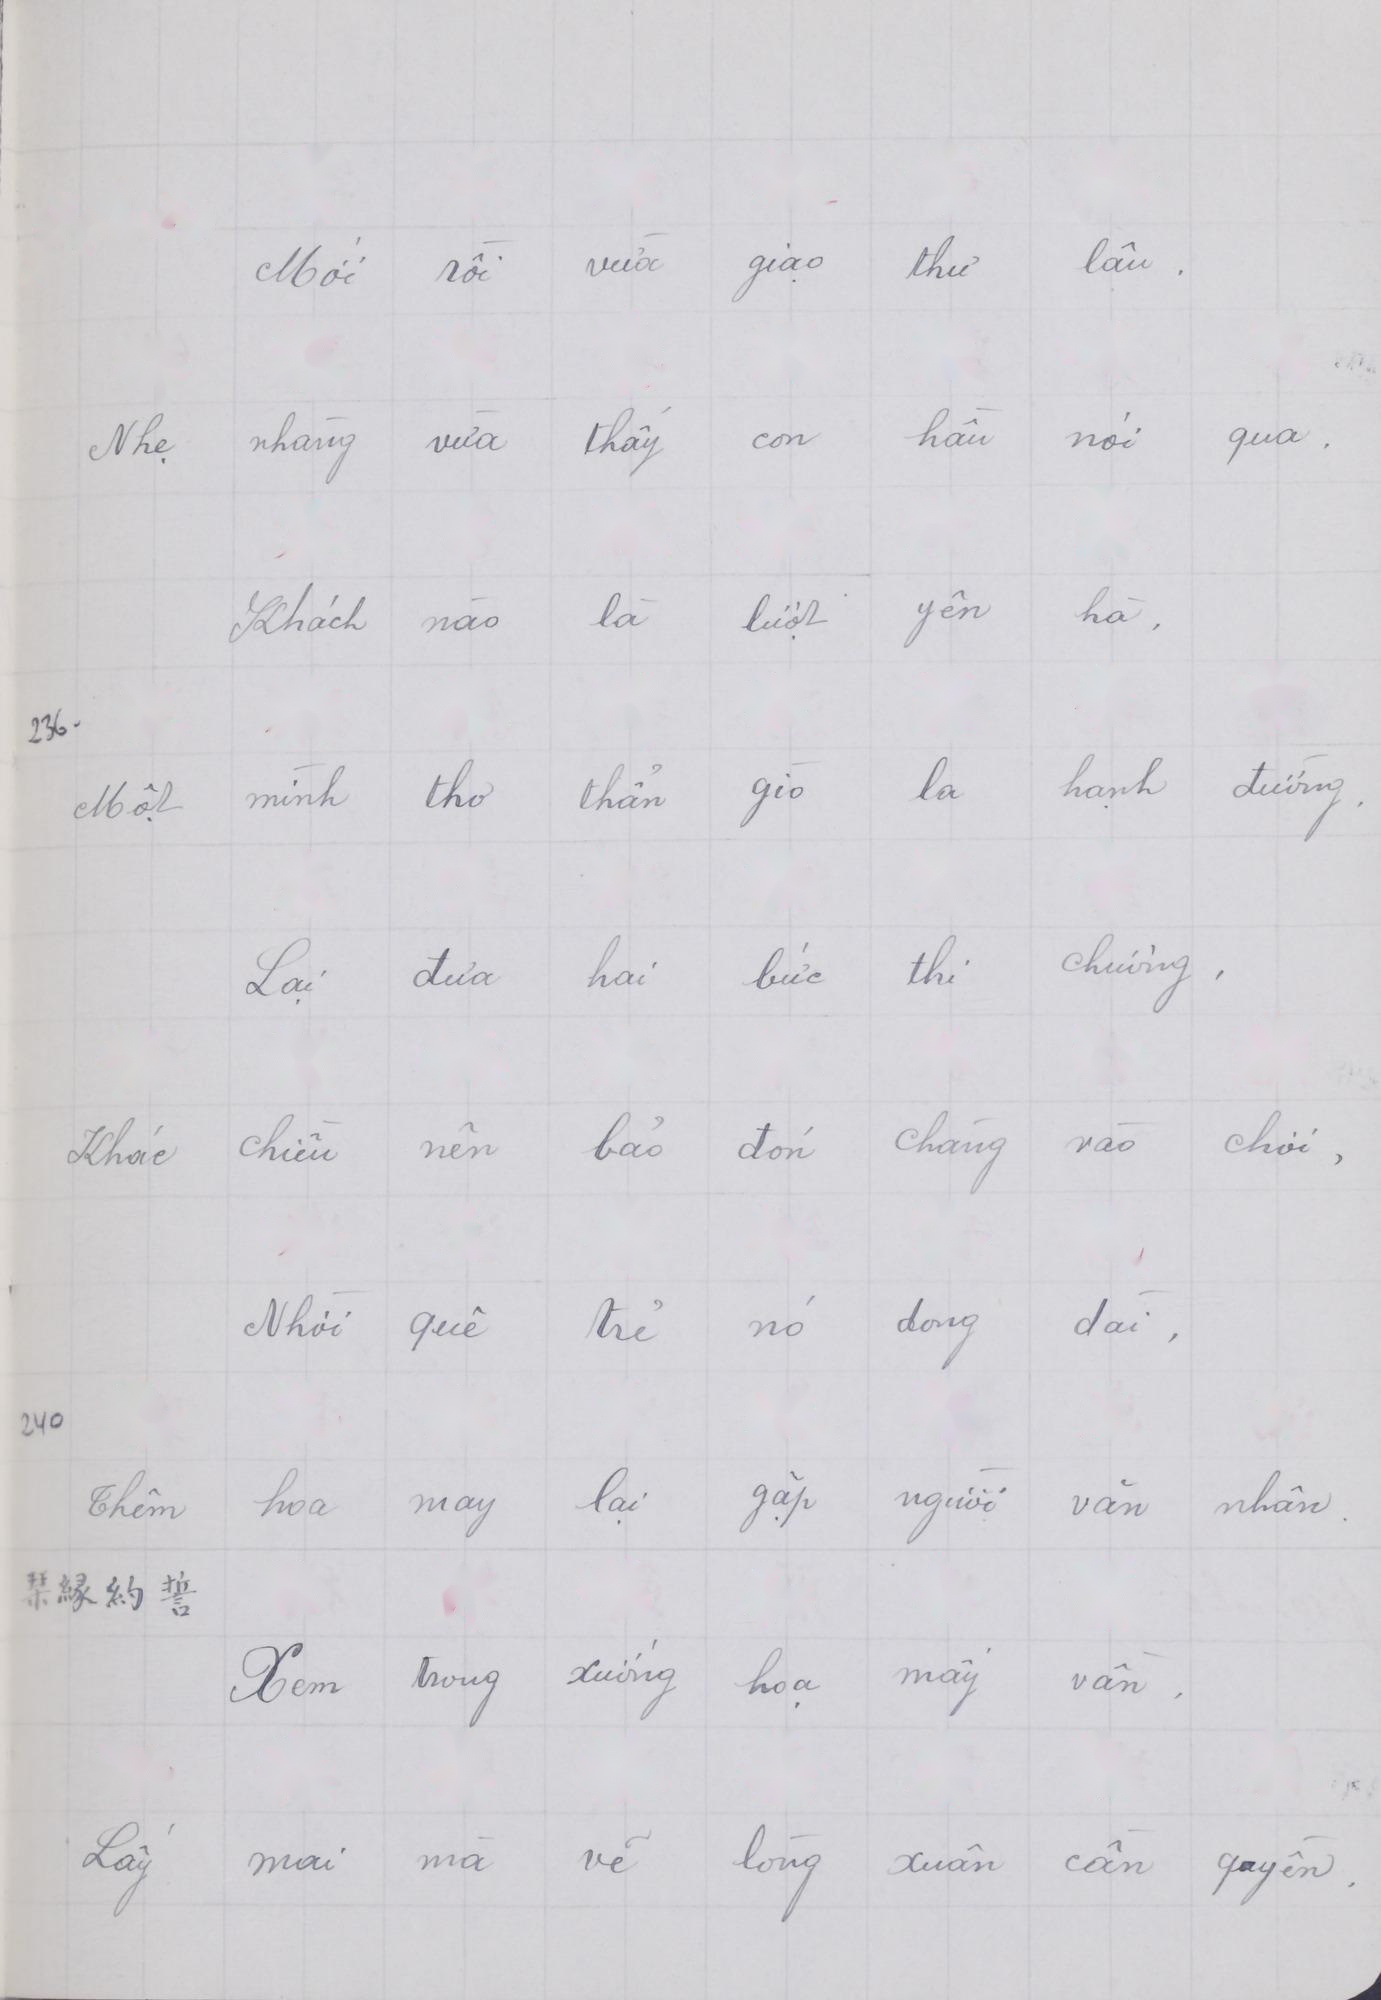 Mới rồi vừa giạo thư lâu.
Nhẹ nhàng vừa thấy con hầu nói qua.
Khách nào là lượt yên hà,
236.
Một mình thơ thẩn giò la hạnh đường.
Lại đưa hai bức thi chương,
Khác chiều nên bảo đón chàng vào chơi,
Nhời quê trẻ nó dong dài,
240
Thềm hoa may lại gặp người văn nhân.
琹縁約誓
Xem trong xướng hoạ mấy vần,
Lấy mai mà vẽ lòng xuân cần quyền.